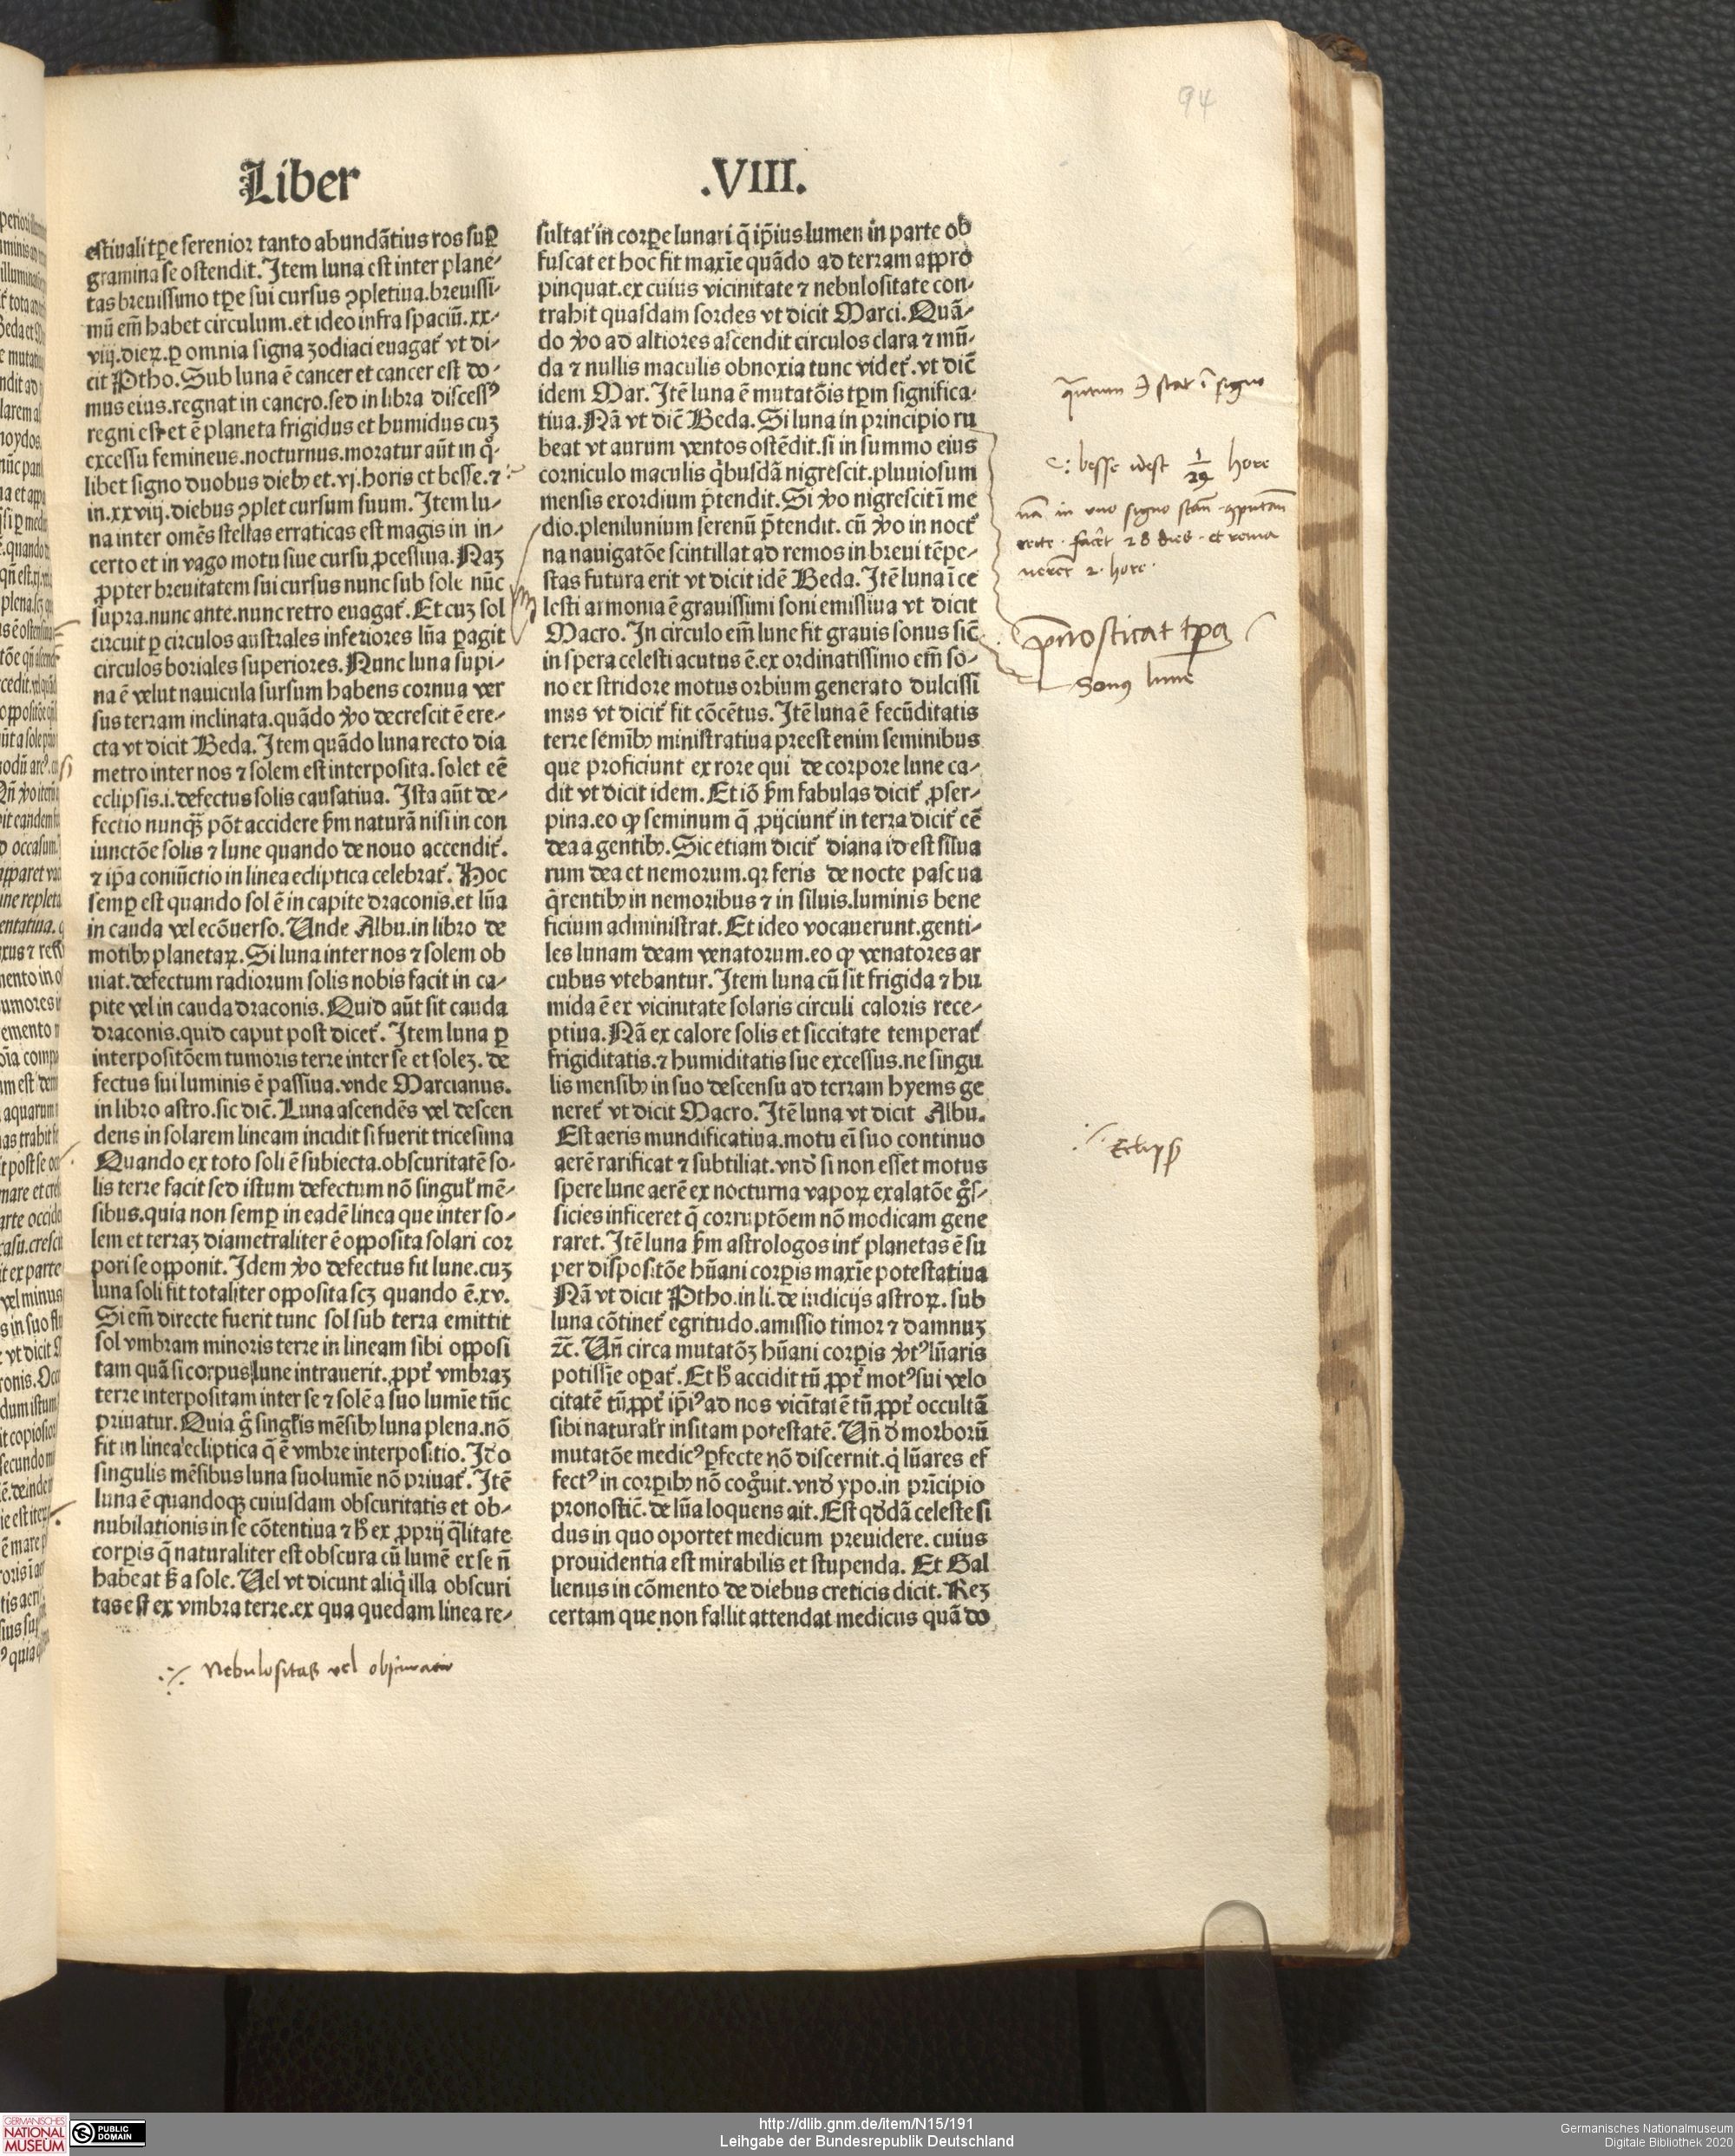 94
Liber
.VIII.
estiuali tꝑe serenior tanto abundātius ros suꝑ
gramina se ostendit. Item luna est inter plane-
tas breuissimo tꝑe sui cursus ꝯpletiua. breuissi-
mū em̄ habet circulum. et ideo infra spaciū. xx-
viij. dieꝝ. ꝑ omnia signa zodiaci euagat᷑ vt di-
cit Ptho. Sub luna ē cancer et cancer est do-
mus eius. regnat in cancro. sed in libra discessꝰ
regni est et ē planeta frigidus et humidus cuꝫ
excessu femineus. nocturnus. moratur aūt in qͦ-
libet signo duobus dieb⁹ et. vj. horis et besse. ⁊
in. xxviij. diebus ꝯplet cursum suum. Item lu-
na inter omēs stellas erraticas est magis in in-
certo et in vago motu siue cursu ꝓcessiua. Naꝫ
ꝓpter breuitatem sui cursus nunc sub sole nūc
supra. nunc ante. nunc retro euagat᷑. Et cuꝫ sol
circuit ꝑ circulos australes inferiores lūa ꝑagit
circulos boriales superiores. Nunc luna supi-
na ē velut nauicula sursum habens cornua ver
sus terram inclinata. quādo v̊o decrescit ē ere-
cta vt dicit Beda. Item quādo luna recto dia
metro inter nos ⁊ solem est interposita. solet eē
eclipsis. i. defectus solis causatiua. Ista aūt de-
fectio nunqͣꝫ pōt accidere ẜm naturā nisi in con
iunctōe solis ⁊ lune quando de nouo accendit᷑.
⁊ ip̄a coniūctio in linea ecliptica celebrat᷑. Hoc
semꝑ est quando sol ē in capite draconis. et lūa
in cauda vel ecōuerso. Unde Albu. in libro de
motib⁹ planetaꝝ. Si luna inter nos ⁊ solem ob
uiat. defectum radiorum solis nobis facit in ca-
pite vel in cauda draconis. Quid aūt sit cauda
draconis. quid caput post dicet᷑. Item luna ꝑ
interpositōem tumoris terre inter se et soleꝫ. de
fectus sui luminis ē passiua. vnde Marcianus.
in libro astro. sic dic̄. Luna ascendēs vel descen
dens in solarem lineam incidit si fuerit tricesima
Quando ex toto soli ē subiecta. obscuritatē so-
lis terre facit sed istum defectum nō singul᷑ mē-
sibus. quia non semꝑ in eadē linea que inter so-
lem et terraꝫ diametraliter ē opposita solari cor
pori se opponit. Idem v̊o defectus fit lune. cuꝫ
luna soli fit totaliter opposita scꝫ quando ē. xv.
Si em̄ directe fuerit tunc sol sub terra emittit
sol vmbram minoris terre in lineam sibi opposi
tam quā si corpus lune intrauerit. ꝓpt᷑ vmbraꝫ
terre interpositam inter se ⁊ solē a suo lumīe tūc
priuatur. Quia g̊ singl᷑is mēsib⁹ luna plena. nō
fit in linea ecliptica q̄ ē vmbre interpositio. Ido
singulis mēsibus luna suo lumīe nō priuat᷑. Itē
luna ē quandoqꝫ cuiusdam obscuritatis et ob-
nubilationis in se cōtentiua ⁊ h̊ ex ꝓprij q̄litate
corꝑis q̄ naturaliter est obscura cū lumē ex se n̄
habeat s̄ a sole. Uel vt dicunt aliqͥ illa obscuri
tas est ex vmbra terre. ex qua quedam linea re-
sultat in corꝑe lunari q̄ ip̄ius lumen in parte ob
fuscat et hoc fit maxīe quādo ad terram appro
pinquat. ex cuius vicinitate ⁊ nebulositate con-
trahit quasdam sordes vt dicit Marci. Quā-
do v̊o ad altiores ascendit circulos clara ⁊ mū-
da ⁊ nullis maculis obnoxia tunc videt᷑. vt dic̄
idem Mar. Itē luna ē mutatōis tꝑm significa-
tiua. Nā vt dic̄ Beda. Si luna in principio ru
beat vt aurum ventos ostēdit. si in summo eius
corniculo maculis qͥbusdā nigrescit. pluuiosum
mensis exordium p̄tendit. Si v̊o nigrescit ī me
dio. plenilunium serenū p̄tendit. cū v̊o in noct᷑
na nauigatōe scintillat ad remos in breui tēpe-
stas futura erit vt dicit idē Beda. Itē luna ī ce
lesti armonia ē grauissimi soni emissiua vt dicit
Macro. In circulo em̄ lune fit grauis sonus sic̄
in spera celesti acutus ē. ex ordinatissimo em̄ so-
no ex stridore motus orbium generato dulcissi
mus vt dicit᷑ fit cōcētus. Itē luna ē fecūditatis
terre semīb⁹ ministratiua preest enim seminibus
que proficiunt ex rore qui de corpore lune ca-
dit vt dicit idem. Et iō ẜm fabulas dicit᷑ ꝓser-
pina. eo ꝙ seminum q̄ ꝓijciunt᷑ in terra dicit᷑ eē
dea a gentib⁹. Sic etiam dicit᷑ diana id est silua
rum dea et nemorum. qꝛ feris de nocte pascua
q̄rentib⁹ in nemoribus ⁊ in siluis. luminis bene
ficium administrat. Et ideo vocauerunt. genti-
les lunam deam venatorum. eo ꝙ venatores ar
cubus vtebantur. Item luna cū sit frigida ⁊ hu
mida ē ex vicinitate solaris circuli caloris rece-
ptiua. Nā ex calore solis et siccitate temperat᷑
frigiditatis. ⁊ humiditatis sue excessus. ne singu
lis mensib⁹ in suo descensu ad terram hyems ge
neret᷑ vt dicit Macro. Itē luna vt dicit Albu.
Est aeris mundificatiua. motu eī suo continuo
aerē rarificat ⁊ subtiliat. vnd̄ si non esset motus
spere lune aerē ex nocturna vapoꝝ exalatōe g̊s-
sicies inficeret q̄ corruptōem nō modicam gene
raret. Itē luna ẜm astrologos int᷑ planetas ē su
per dispositōe hūani corꝑis maxīe potestatiua
Nā vt dicit Ptho. in li. de iudicijs astroꝝ. sub
luna cōtinet᷑ egritudo. amissio timor ⁊ damnuꝫ
ꝛc̄. Un̄ circa mutatōꝫ hūani corꝑis v̊tꝰ lūaris
potissīe oꝑat᷑. Et h̊ accidit tū ꝓpt᷑ motꝰ sui velo
citatē tū ꝓpt᷑ ip̄iꝰ ad nos vicītatē tū ꝓpt᷑ occultā
sibi natural᷑r insitam potestatē. Un̄ d̊ morborū
mutatōe medicꝰ ꝑfecte nō discernit. qͥ lūares ef
fectꝰ in corꝑib⁹ nō cog̊uit. vnd̄ ypo. in prīcipio
pronostic̄. de lūa loquens ait. Est qd̄dā celeste si
dus in quo oportet medicum preuidere. cuius
prouidentia est mirabilis et stupenda. Et Gal
lienus in cōmento de diebus creticis dicit. Reꝫ
certam que non fallit attendat medicus quādo
qͣntum ☽ stat ī signo
besse idest 1/29 hore
nā in vno signo
28 dies et rema
neret 2 hore
p̄nosticat tꝑa
Sonꝰ lune
Eclips
Nebulositas vel obscuratio
http://dlib.gnm.de/item/N15/191
Leihgabe der Bundesrepublik Deutschland
GERMANISCHES
NATIONAL
MUSEUM
PUBLIC
DOMAIN
Germanisches Nationalmuseum
Digitale Bibliothek 2020